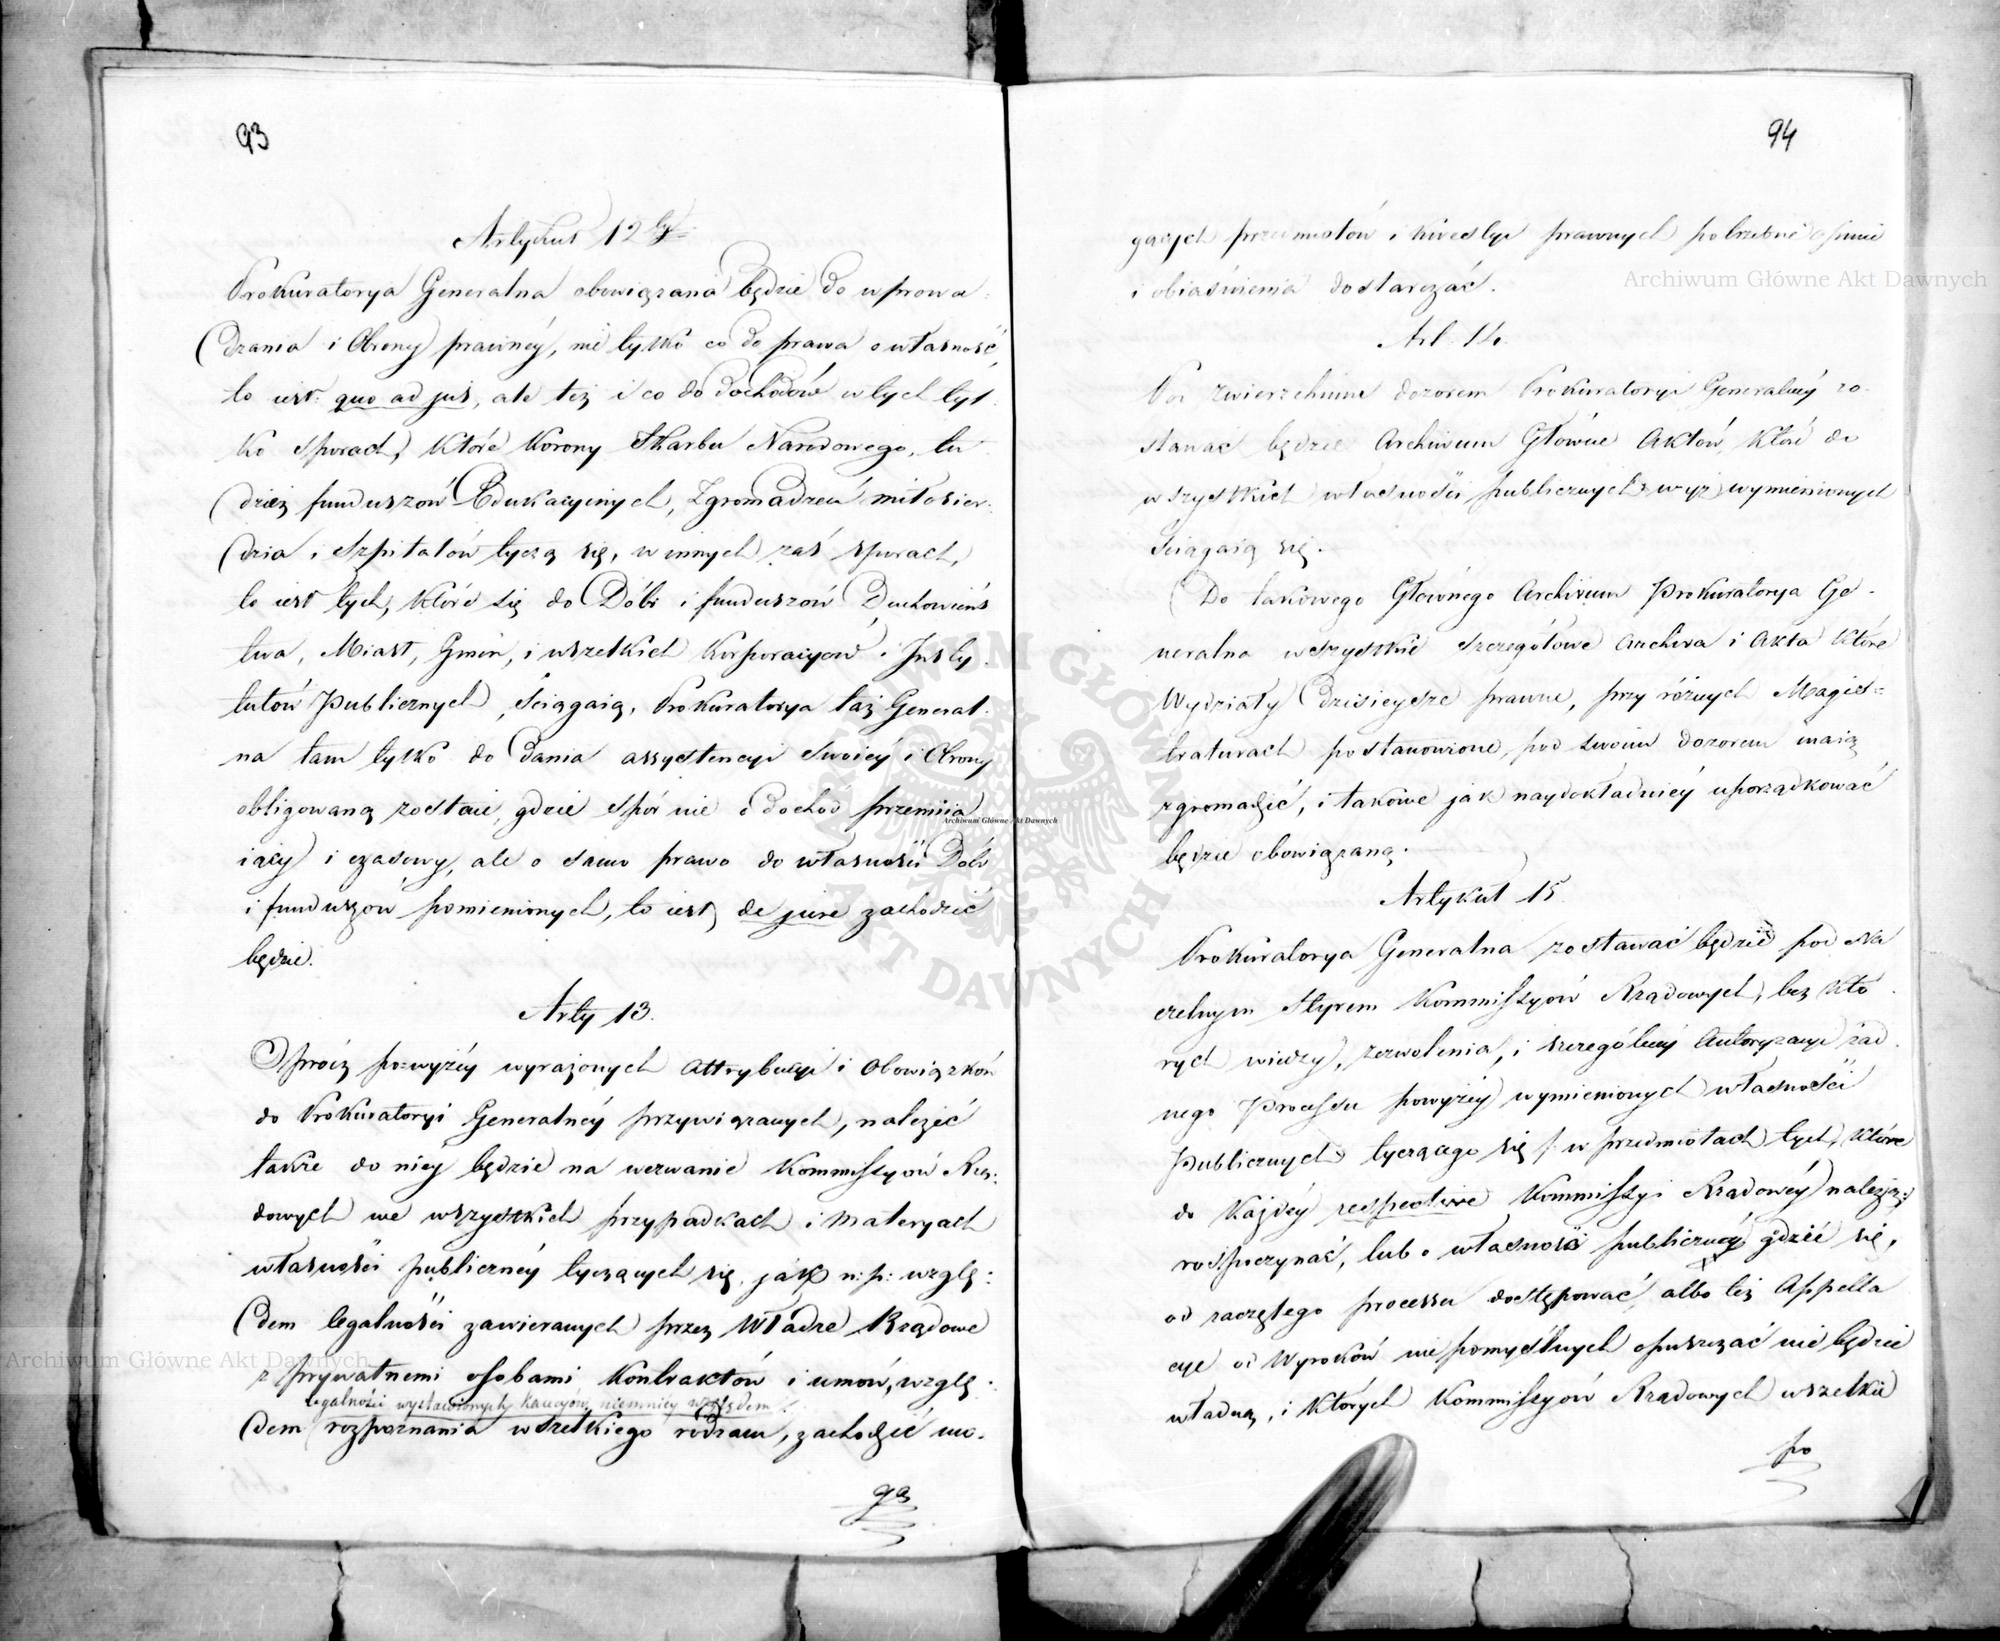 93
Artykuł 12ty
Prokuratorya Generalna obowiązana będzie do wprowa-
dzania i Obrony prawnéy, nie tylko co do prawa o własność,
to iest: quo ad jus, ale też i co do dochodów w tych tyl-
ko sporach, które Korony Skarbu Narodowego, tu-
dzież funduszów Edukacyinych, Zgromadzeń miłosier-
dzia i Szpitalów tyczą się, w innych zaś sporach,
to iest tych, które się do Dóbr i funduszów Duchowieńs
twa, Miast, Gmin, i wszelkich Korporacyów i Insty-
tutów Publicznych ściągaią, Prokuratorya taż General-
na tam tylko do dania assystencyi swoiéy i Obrony
obligowaną zostaie, gdzie spór nie o dochod przemiia
iący i czasowy, ale o samo prawo do własności Dóbr
i funduszów pomienionych, to iest de jure zachodzić
będzie.
Arty 13.
Oprócz powyżéy wyrażonych attrybucyi i Obowiązków
do Prokuratoryi Generalnéy przywiązanych, należéć
także do niéy będzie na wezwanie Kommissyów Rzą-
dowych we wszystkich przypadkach i materyach
własności publicznéy tyczących się, jako n:p: wzglę-
dem legalności zawieranych przez Władze Rządowe
z prywatnemi osobami Kontraktów i umów, wzglę-
legalności wystawionych kaucyów, niemniey względem
dem rozpoznania wszelkiego rodzaiu, zachodzić mo-
gą
94
gących przedmiotów i kwestyi prawnych potrzebne opinie
i obiaśnienia dostarczać.
Art. 14.
Pod zwierzchnim dozorem Prokuratoryi Generalnéy zo-
stawać będzie Archiwum Główne Aktów, które do
wszystkich własności publicznych wyż wymienionych
ściągaią się.
Do takowego Głównego Archiwum Prokuratorya Ge-
neralna wszystkie szczegółowe Archiva i Akta które
Wydziały dzisieysze prawne, przy różnych Magis-
traturach postanowione, pod swoim dozorem maią
zgromadzić, i takowe jak naydokładniéy uporządkować
będzie obowiązaną.
Artykuł 15
Prokuratorya Generalna zostawać będzie pod Na
czelnym Styrem Kommissyów Rządowych, bez któ-
rych wiedzy, zezwolenia, i szczególnéy Autoryzacyi żad-
nego Processu powyżéy wymienionych własności
Publicznych tyczącego się /: w przedmiotach tych, które
do każdéy respective Kommissyi Rządowéy należą :/
rozpoczynać, lub o własność publiczną godzić się,
od zaczętego processu odstępować, albo też Appella
cyę od Wyroków niepomyślnych opuszczać nie będzie
władną, i których Kommissyów Rządowych wszelkie
po
Archiwum Główne Akt Dawnych
Archiwum Główne Akt Dawnych
Archiwum Główne Akt Dawnych